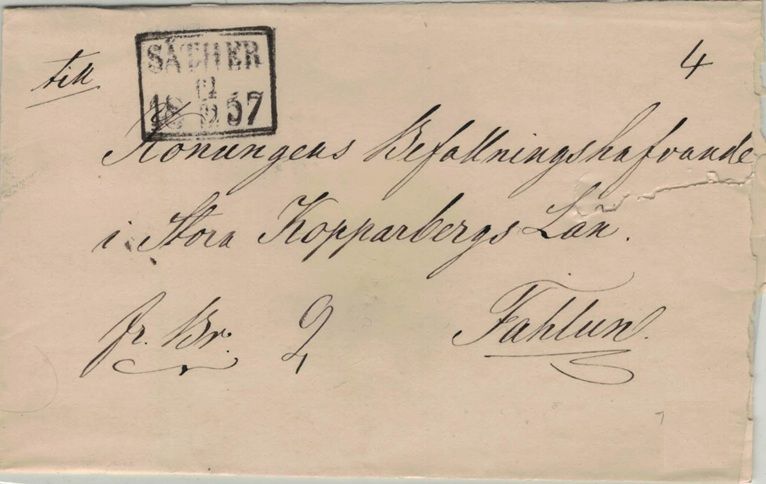 till
SÄTHER
12
18 2 57
4
Konungens Befallningshafvande
i Stora Kopparbergs Län.
fr. Br. 2
Fahlun.